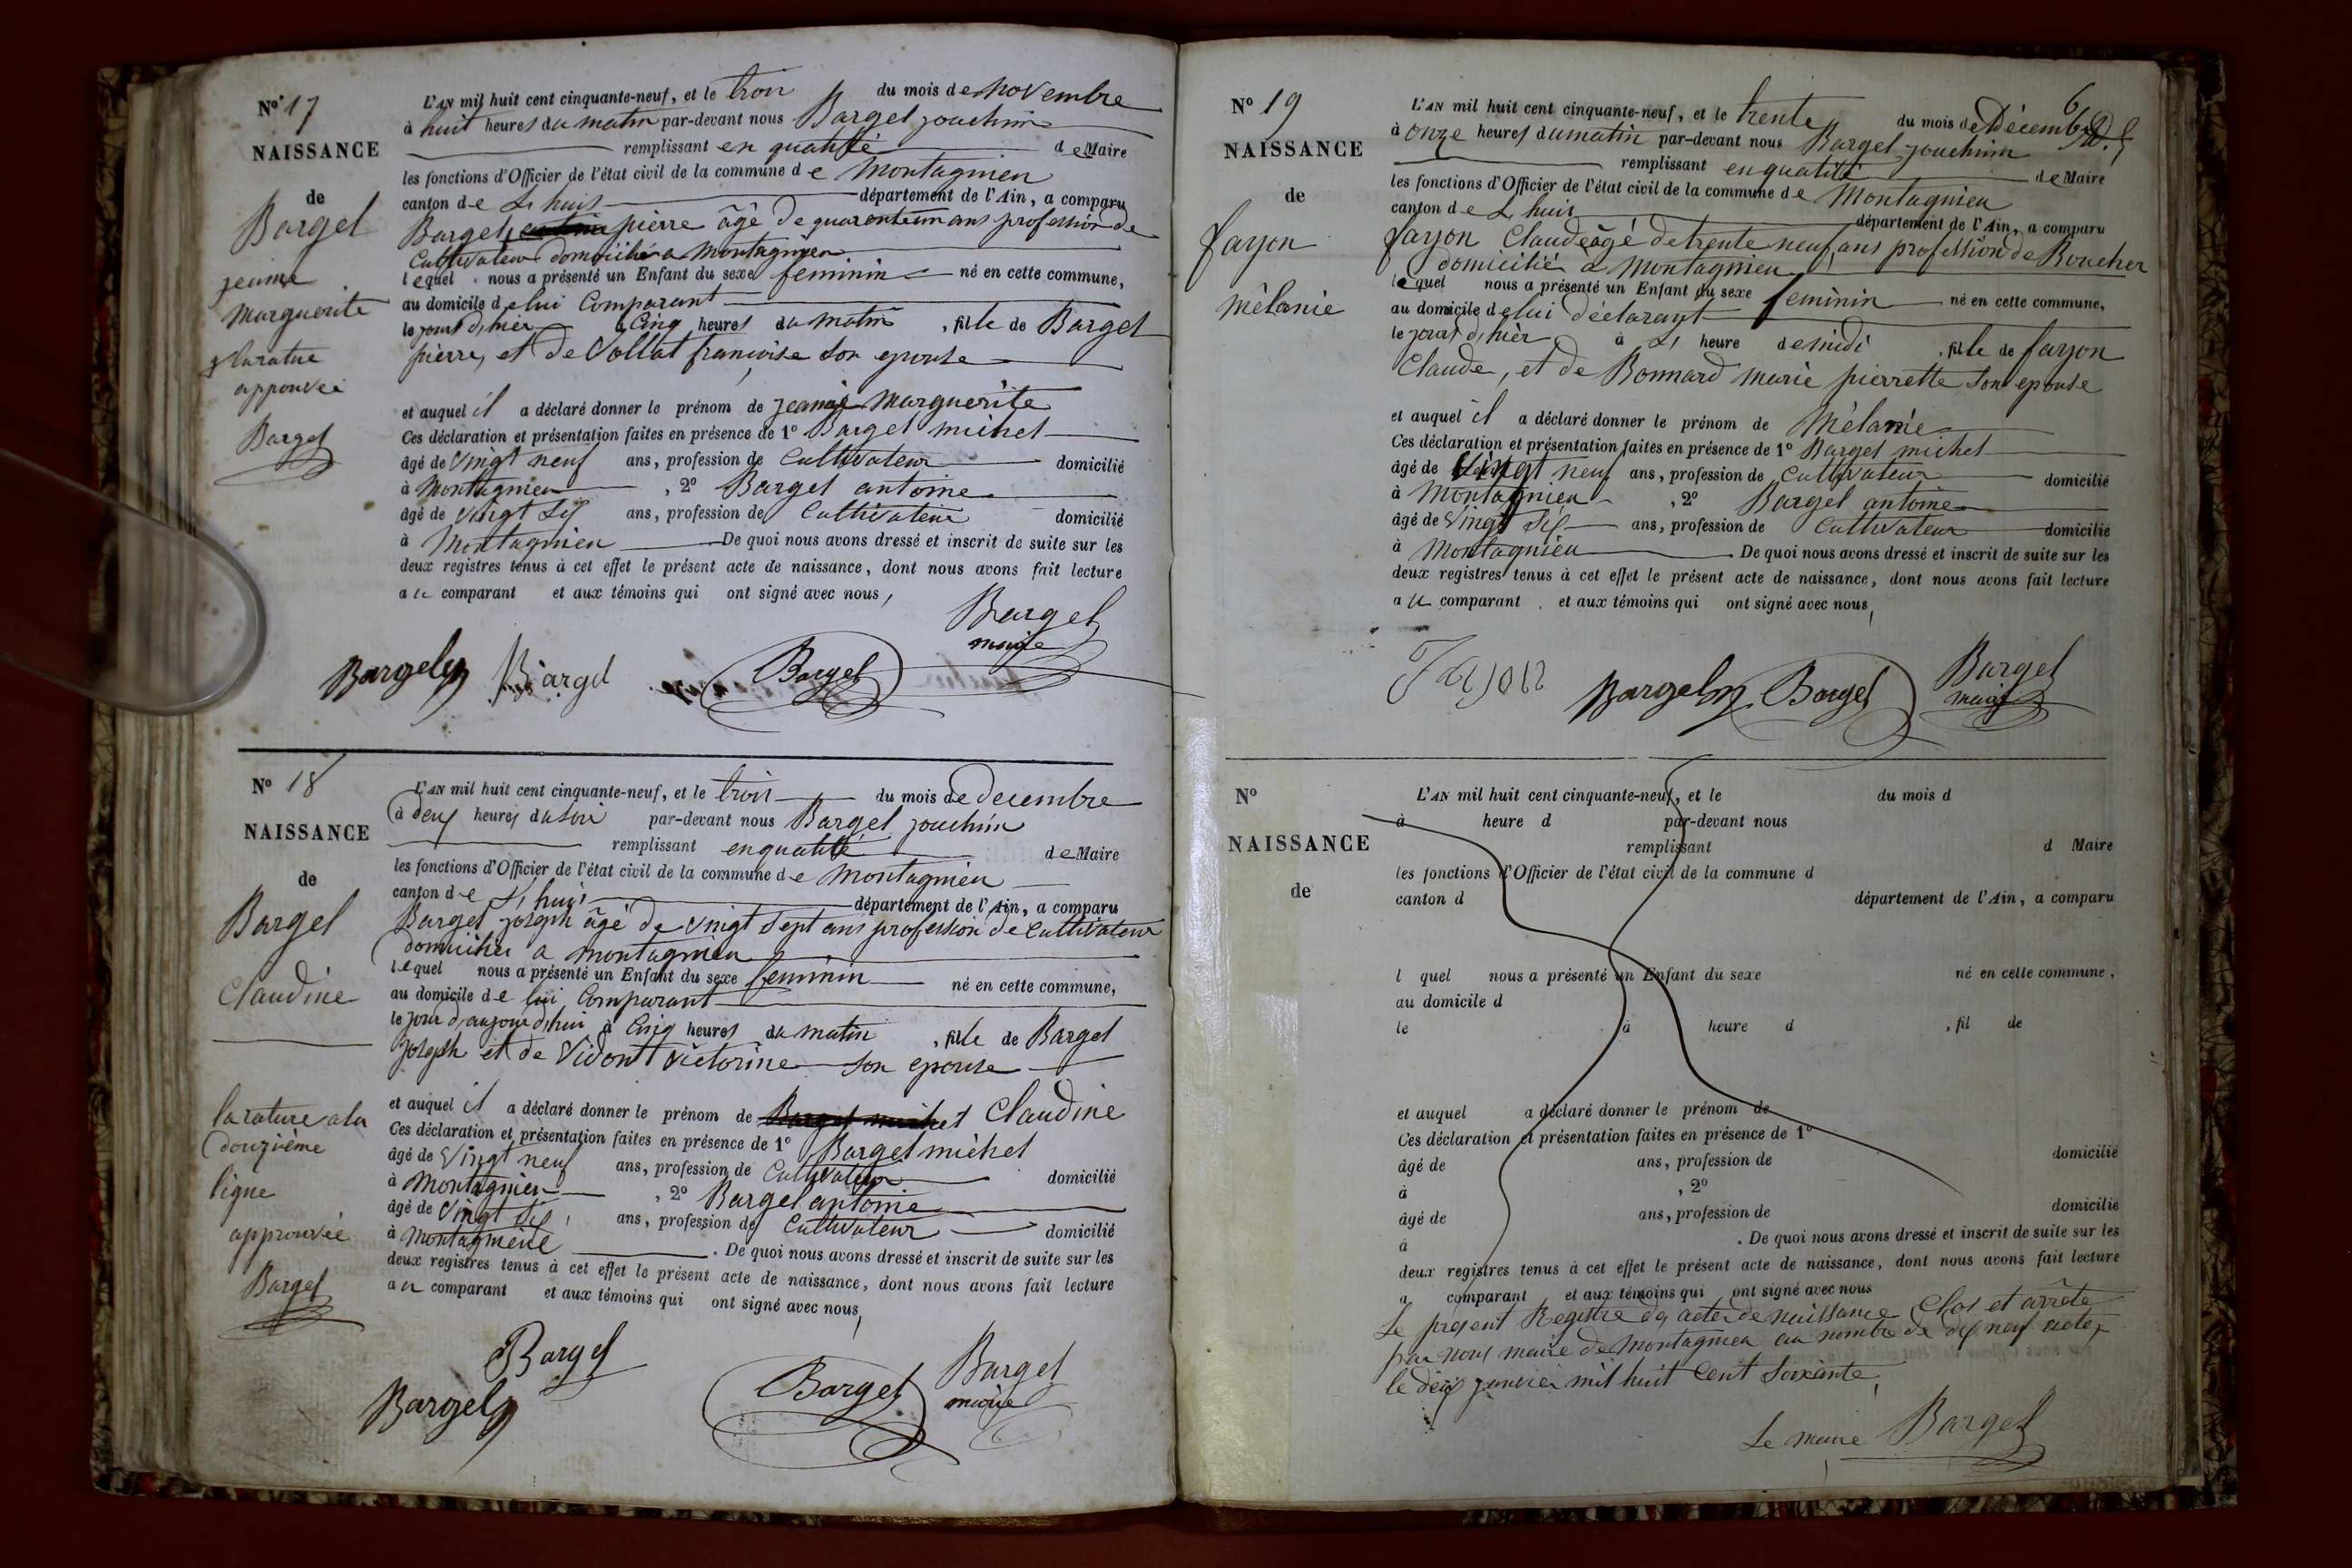 No 17
NAISSANCE
de
Bargel
jeanne
Marguerite
la rature
approuvée
Bargel
L'AN mil huit cent cinquante-neuf, et le trois du mois de novembre
à huit heures du matin par-devant nous Bargel jouachim
remplissant en qualité de Maire
les fonctions d'Officier de l'état civil de la commune de Montagnieu
canton de Lhuis département de l'Ain, a comparu
Bargel pierre âgé de quarente un ans profession de
Cultivateur domicilié a Montagnieu
lequel nous a présenté un Enfant du sexe feminin né en cette commune,
au domicile de lui Comparant
le jour d'hier à Cinq heures du matin, fille de Bargel
pierre, et de Vollat francoise son epouse
et auquel il a déclaré donner le prénom de jeanne Marguerite
Ces déclaration et présentation faites en présence de 1o Bargel michel
âgé de vingt neuf ans, profession de Cultivateur domicilié
à Montagnieu, 2o Bargel antoine
âgé de vingt six ans, profession de Cultivateur domicilié
à Montagnieu De quoi nous avons dressé et inscrit de suite sur les
deux registres tenus à cet effet le présent acte de naissance, dont nous avons fait lecture
au comparant et aux témoins qui ont signé avec nous,
Bargel
maire
Bargel Bargel Bargel
No 18
NAISSANCE
de
Bargel
Claudine
la rature a la
douzième
ligne
approuvée
Bargel
L'AN mil huit cent cinquante-neuf, et le trois du mois de decembre
à deux heures du soir par-devant nous Bargel jouachim
remplissant en qualité de Maire
les fonctions d'Officier de l'état civil de la commune de Montagnieu
canton de Lhuis département de l'Ain, a comparu
Bargel joseph âgé de vingt sept ans profession de Cultivateur
domicilié a montagnieu
lequel nous a présenté un Enfant du sexe feminin né en cette commune,
au domicile de lui Comparant
le jour d'aujourd'hui à Cinq heures du matin, fille de Bargel
joseph et de Vidont Victorine son epouse
et auquel il a déclaré donner le prénom de Bargel michel Claudine
Ces déclaration et présentation faites en présence de 1o Bargel michel
âgé de vingt neuf ans, profession de Cultivateur domicilié
à Montagnieu, 2o Bargel antoine
âgé de vingt six ans, profession de Cultivateur domicilié
à Montagnieu. De quoi nous avons dressé et inscrit de suite sur les
deux registres tenus à cet effet le présent acte de naissance, dont nous avons fait lecture
au comparant et aux témoins qui ont signé avec nous,
Bargel
Bargel Bargel Bargel
maire
6
No 19
NAISSANCE
de
fayon
Mélanie
L'AN mil huit cent cinquante-neuf, et le trente du mois de Décembre
à onze heures du matin par-devant nous Bargel jouachim
remplissant en qualité de Maire
les fonctions d'Officier de l'état civil de la commune de Montagnieu
canton de Lhuis département de l'Ain, a comparu
fayon Claude âgé de trente neuf ans profession de Boucher
domicilié à Montagnieu
lequel nous a présenté un Enfant du sexe feminin né en cette commune,
au domicile de lui déclarant
le jour d'hier à heure de midi, fille de fayon
Claude, et de Bonnard marie pierrette son epouse
et auquel il a déclaré donner le prénom de Mélanie
Ces déclaration et présentation faites en présence de 1o Bargel michel
âgé de vingt neuf ans, profession de Cultivateur domicilié
à Montagnieu, 2o Bargel antoine
âgé de vingt six ans, profession de Cultivateur domicilié
à Montagnieu. De quoi nous avons dressé et inscrit de suite sur les
deux registres tenus à cet effet le présent acte de naissance, dont nous avons fait lecture
au comparant et aux témoins qui ont signé avec nous,
Fayon Bargel Bargel Bargel
maire
No
NAISSANCE
de
L'AN mil huit cent cinquante-neuf, et le du mois d
à heure d par-devant nous
remplissant d Maire
les fonctions d'Officier de l'état civil de la commune d
canton d département de l'Ain, a comparu
l quel nous a présenté un Enfant du sexe né en cette commune,
au domicile d
le à heure d , fil de
et auquel a déclaré donner le prénom de
Ces déclaration et présentation faites en présence de 1o
âgé de ans, profession de domicilié
à , 2o
âgé de ans, profession de domicilié
à . De quoi nous avons dressé et inscrit de suite sur les
deux registres tenus à cet effet le présent acte de naissance, dont nous avons fait lecture
a comparant et aux témoins qui ont signé avec nous
Le present Registre des actes de naissance Clos et arrêté
par nous maire de Montagnieu au nombre de dix neuf actes
le deux janvier mil huit Cent Soixante,
Le maire Bargel